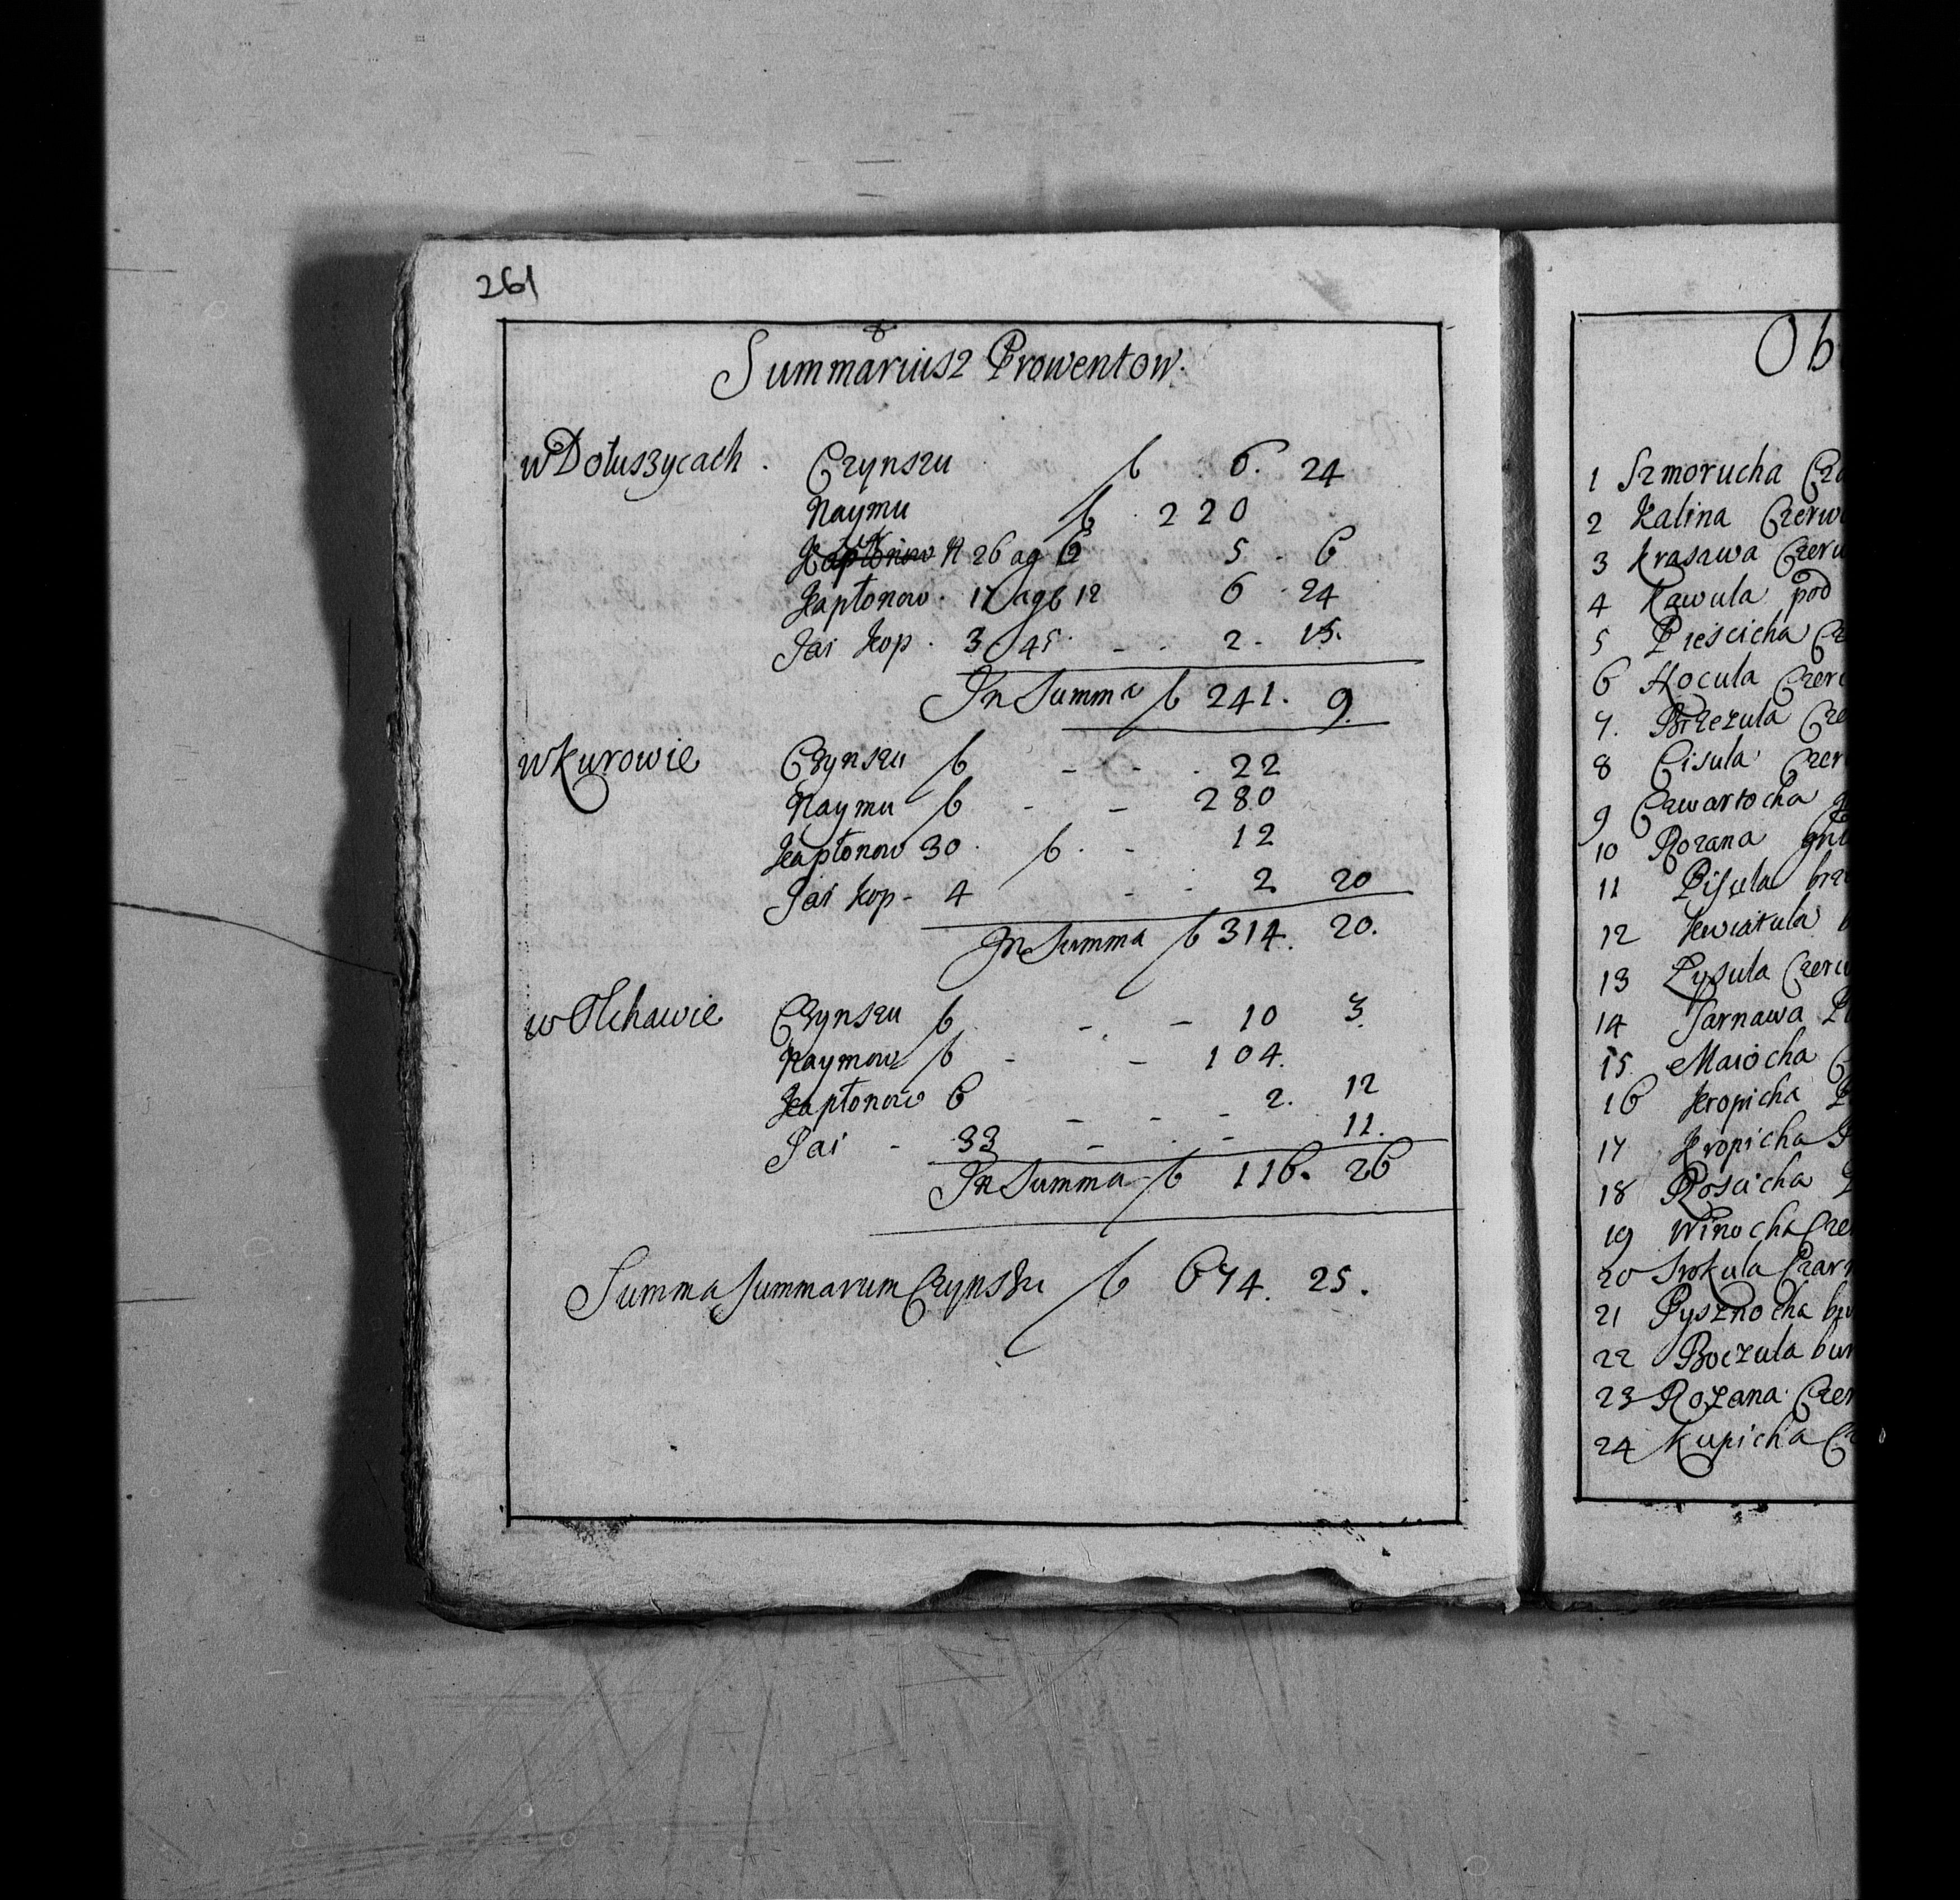 261
Summariusz Prowentow.
w Dołuszycach. Czynszu f 6. 24
Naymu f 220
26 ag 6 5 6
Kapłonow 17 ag 6 12 6 24
Jai kop. 3/45 2. 15.
In Summa f 241. 9.
w Kurowie Czynszu f 22
Naymu f 280
Kapłonow 30 f 12
Jai kop 4 2 20
In Summa f 314. 20.
w Olchawie Czynszu f 10 3.
Naymow f 104.
Kapłonow 6 2. 12
Jai 33 11.
In Summa f 116. 26
Summa Summarum Czynszu f 674. 25.
Ob
1 Szmorucha
2 Kalina Czerw
3 Krasawa Czerw
4 Kawula pod
5 Pieścicha
6 Hocula Czerw
7. Brzezula Cze
8 Cisula Czer
9 Czwartocha
10 Rozana gni
11 Pisula brz
12 Kwiatula
13 Łysula Czerw
14 Tarnawa
15 Maiocha
16 Kropicha
17 Kropicha
18 Rościcha
19 Winocha Cze
20 Srokula Czarn
21 Pysznocha
22 Boczula bur
23 Rozana Czer
24 Kupicha